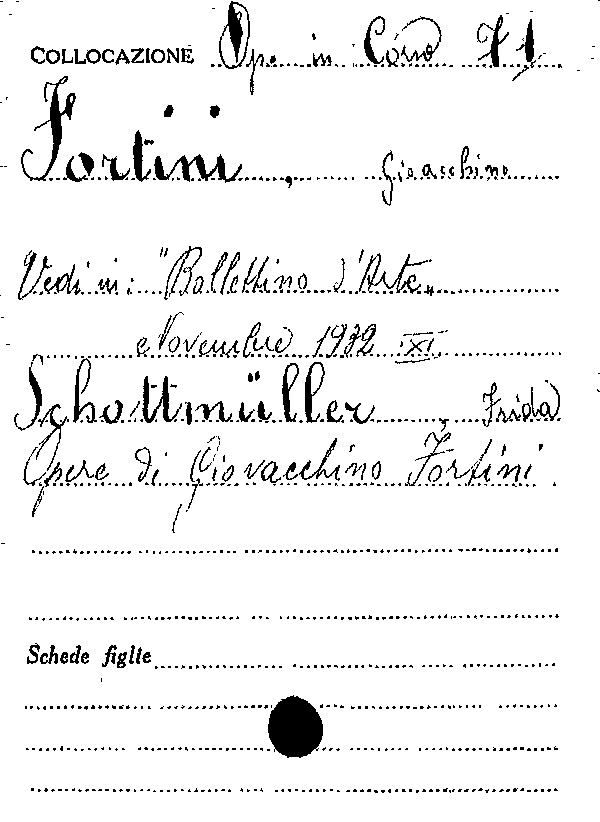 COLLOCAZIONE Op. in Corso 71
Fortini, Gioacchino
Vedi in: "Bollettino d'Arte"
Novembre 1932 XI
Schottmüller, Frida
Opere di Giovacchino Fortini.
Schede figlie